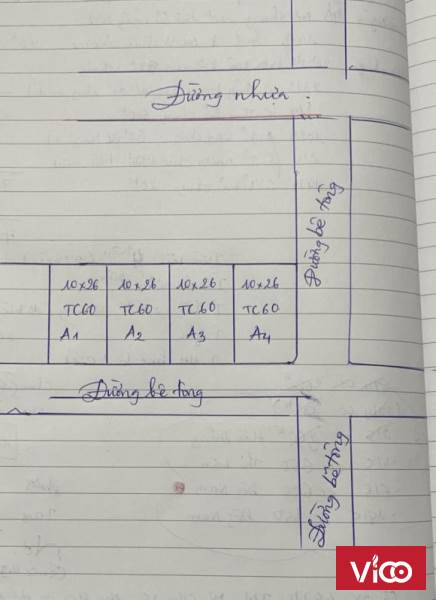 Đường nhựa.
Đường bê tông
10x26
TC60
A1
10x26
TC60
A2
10x26
TC60
A3
10x26
TC60
A4
Đường bê tông
Đường bê tông
Vico